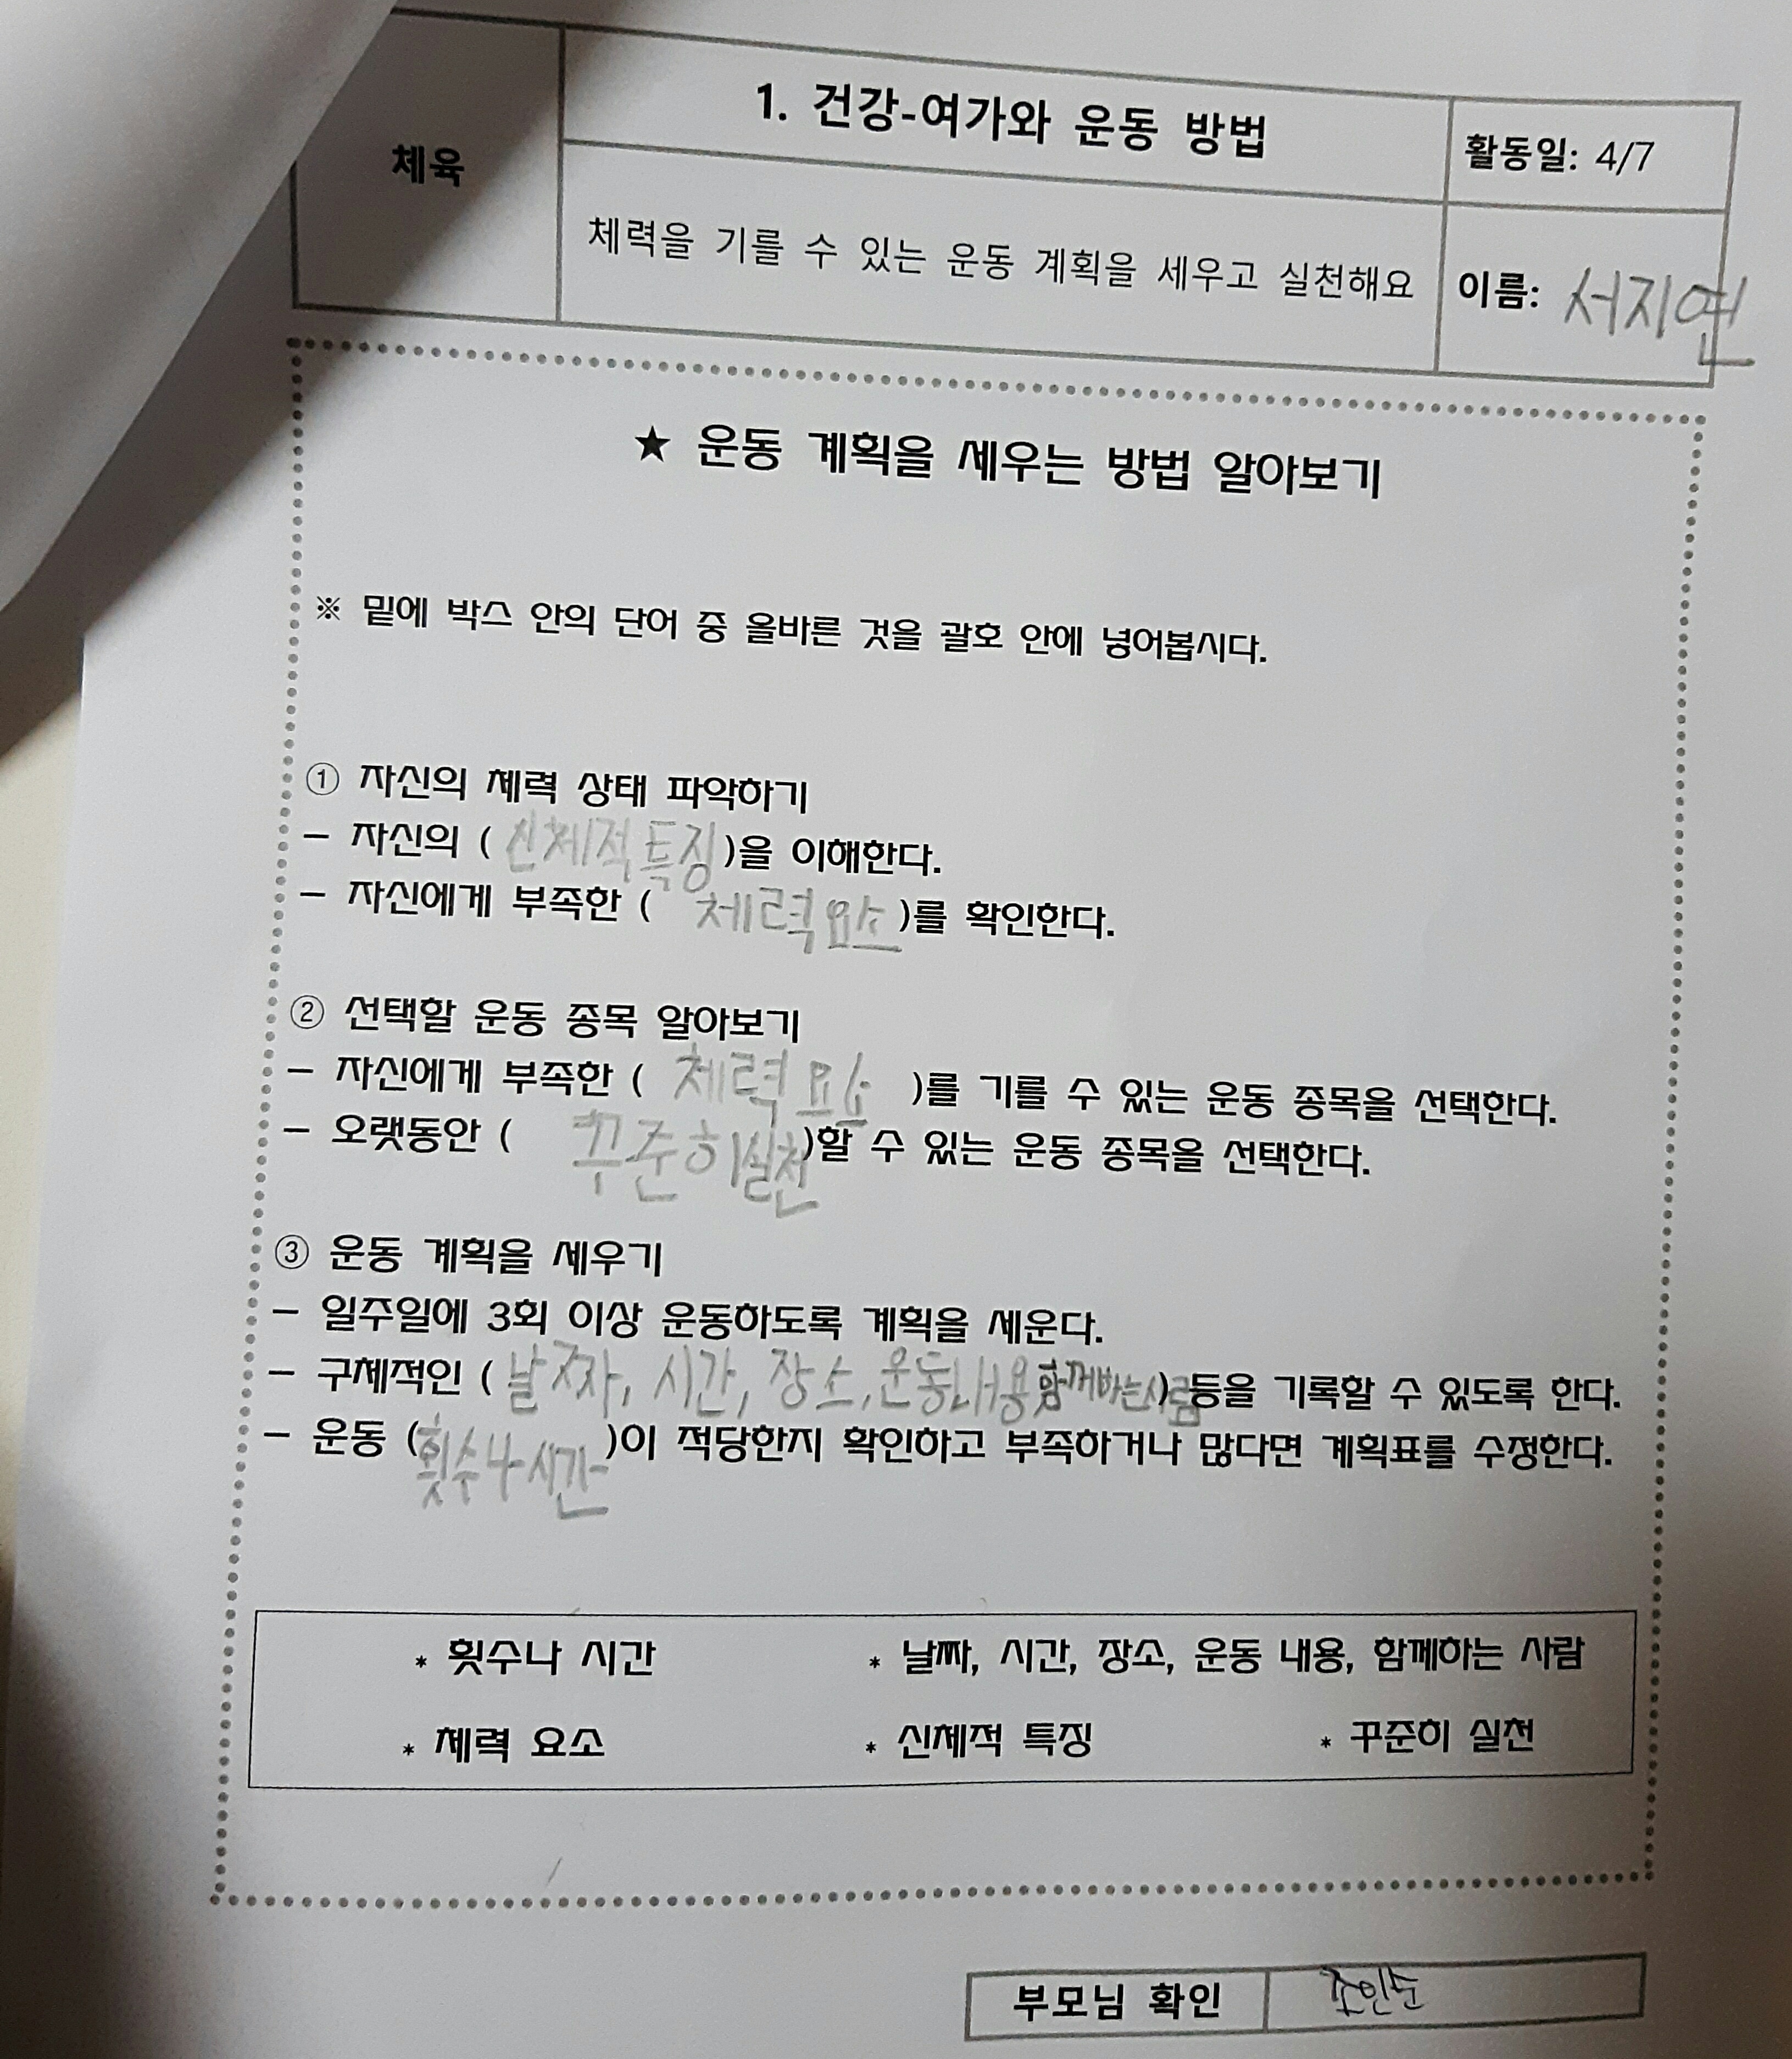 체육
1. 건강-여가와 운동 방법
활동일: 4/7
체력을 기를 수 있는 운동 계획을 세우고 실천해요
이름: 서지연
★ 운동 계획을 세우는 방법 알아보기
※ 밑에 박스 안의 단어 중 올바른 것을 괄호 안에 넣어봅시다.
① 자신의 체력 상태 파악하기
- 자신의 ( 신체적특징 )을 이해한다.
- 자신에게 부족한 ( 체력요소 )를 확인한다.
② 선택할 운동 종목 알아보기
- 자신에게 부족한 ( 체력요소 )를 기를 수 있는 운동 종목을 선택한다.
- 오랫동안 ( 꾸준히실천 )할 수 있는 운동 종목을 선택한다.
③ 운동 계획을 세우기
- 일주일에 3회 이상 운동하도록 계획을 세운다.
- 구체적인 ( 날짜, 시간, 장소, 운동내용함께하는사람 ) 등을 기록할 수 있도록 한다.
- 운동 ( 횟수나시간 )이 적당한지 확인하고 부족하거나 많다면 계획표를 수정한다.
* 횟수나 시간 * 날짜, 시간, 장소, 운동 내용, 함께하는 사람
* 체력 요소 * 신체적 특징 * 꾸준히 실천
부모님 확인